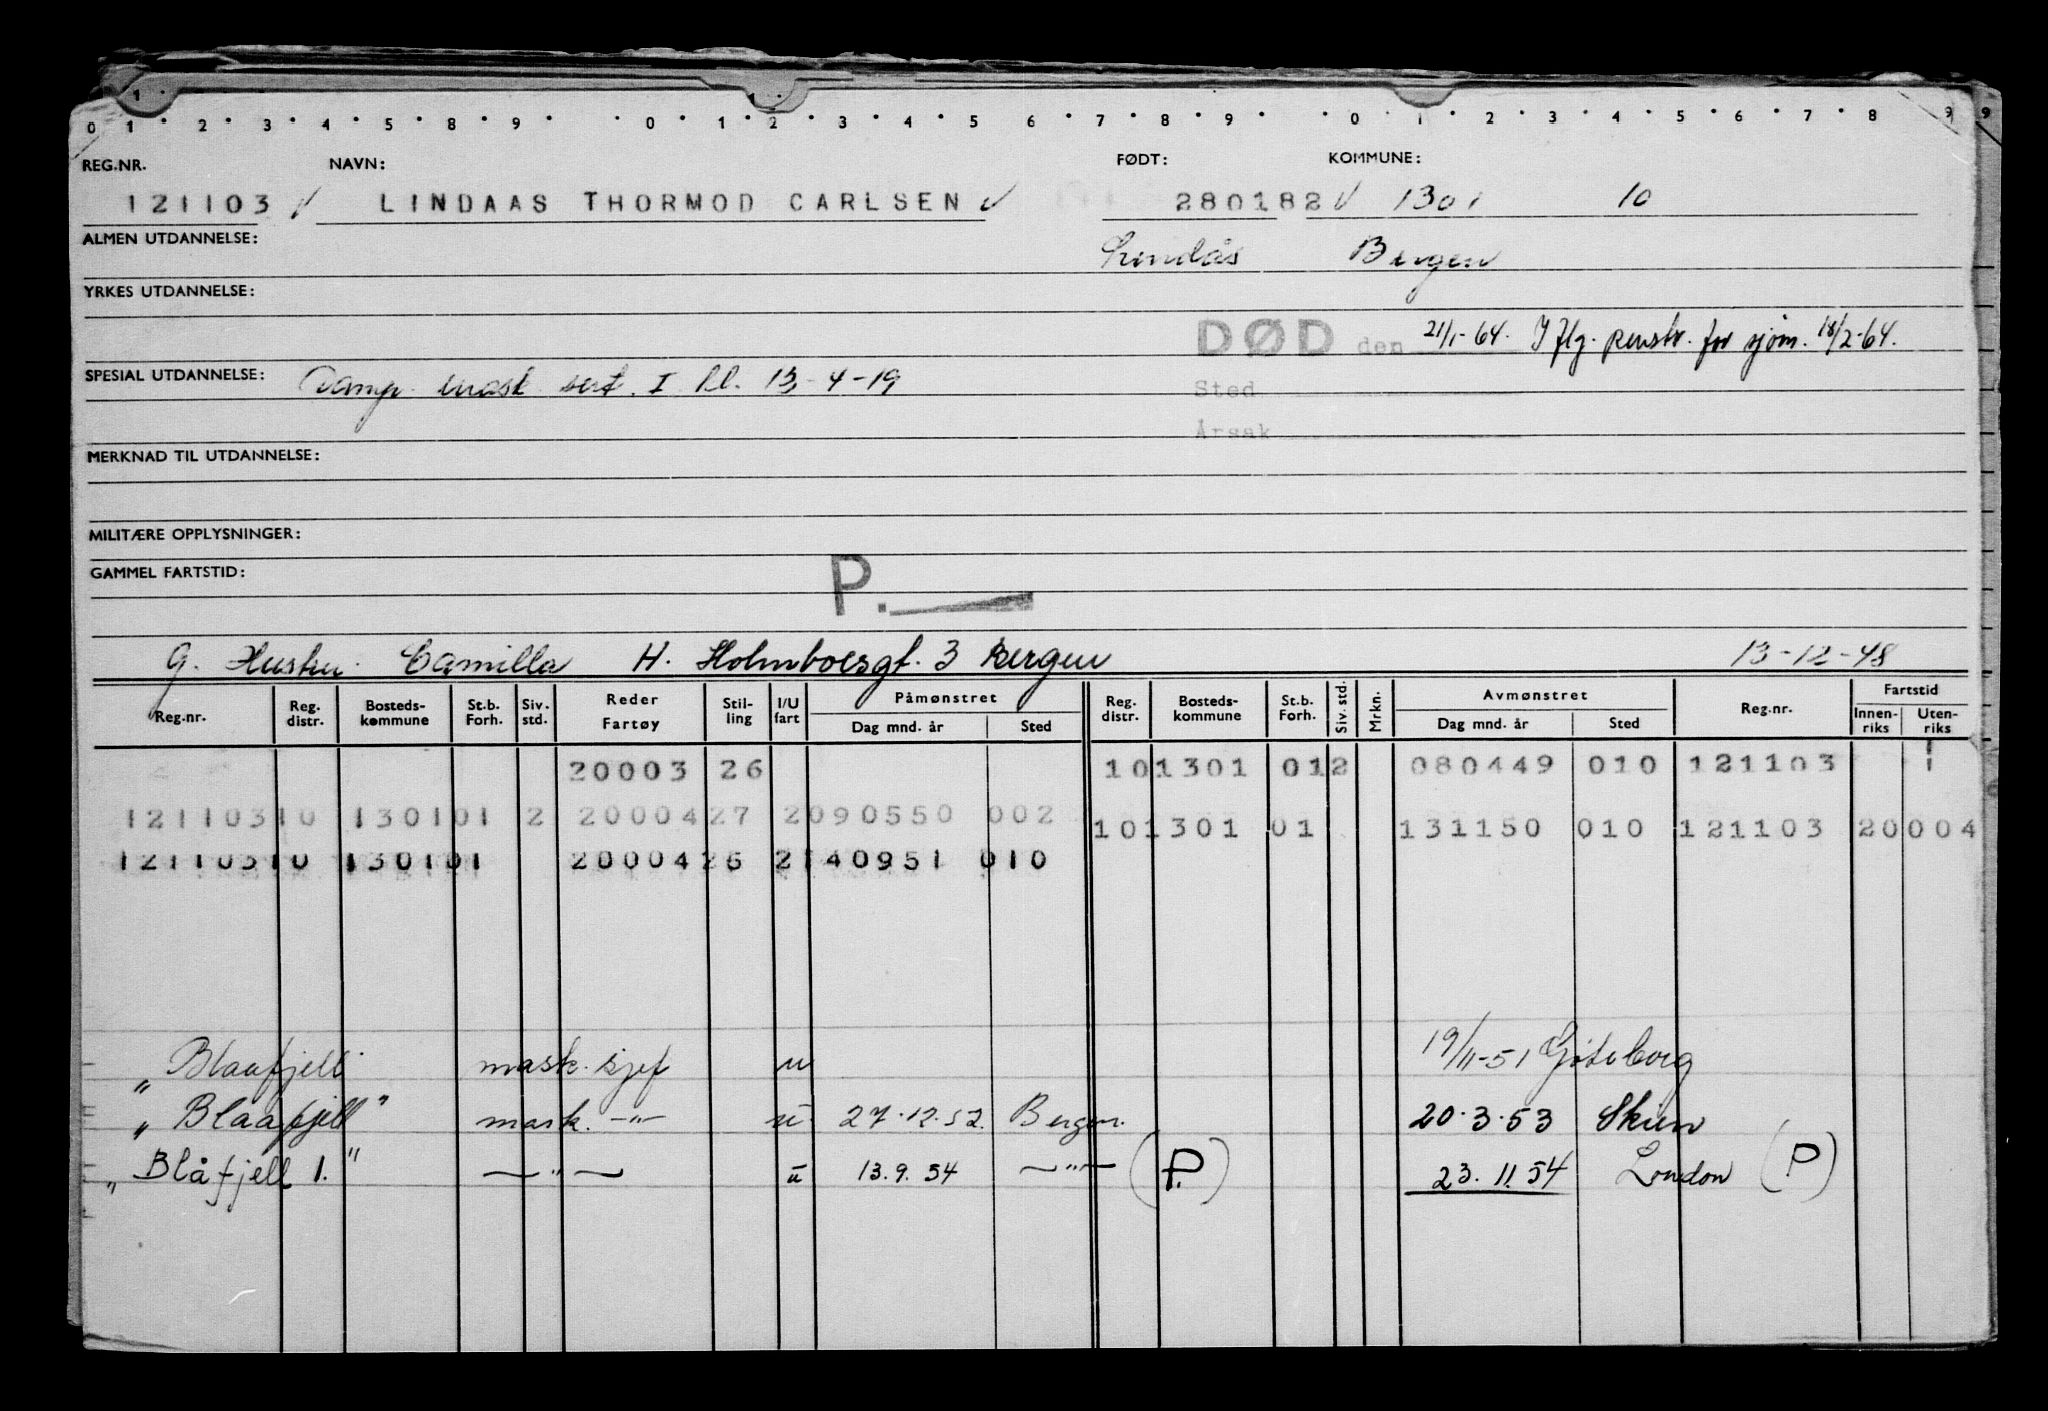 0 1 2 3 4 5 6 7 8 9 0 1 2 3 4 5 6 7 8 9 0 1 2 3 4 5 6 7 8 9
REG.NR. NAVN: FØDT: KOMMUNE:
121103 LINDAAS THORMOD CARLSEN 280182 1301 10
ALMEN UTDANNELSE: Lindås Bergen
YRKES UTDANNELSE:
DØD den 21/1-64. I flg. penstr. for sjøm. 18/2-64.
SPESIAL UTDANNELSE: Damp. mask sert. I kl. 13-4-19
Sted
Årsak
MERKNAD TIL UTDANNELSE:
MILITÆRE OPPLYSNINGER:
GAMMEL FARTSTID:
P.
G. Hustru Camilla H. Holmboesgt. 3 Bergen 13-12-48
Reg.nr. Reg. distr. Bosteds-kommune St.b. Forh. Siv. std. Reder Fartøy Stil-ling I/U fart Påmønstret Dag mnd. år Sted Reg. distr. Bosteds-kommune St.b. Forh. Siv. std. Mrkn. Avmønstret Dag mnd. år Sted Reg.nr. Fartstid Innen-riks Uten-riks
20003 26 101301 012 080449 010 121103 1
12110310 130101 2 2000427 2090550 002 101301 01 131150 010 121103 20004
12110310 130101 2000426 2140951 010
„Blaafjell mask. sjef u 19/11-51 Gøteborg
„Blaafjell" mask. -"- u 27.12.52. Bergen. 20.3.53 Skien
„Blåfjell 1." -"- u 13.9.54 -"- (P.) 23.11.54 London (P)